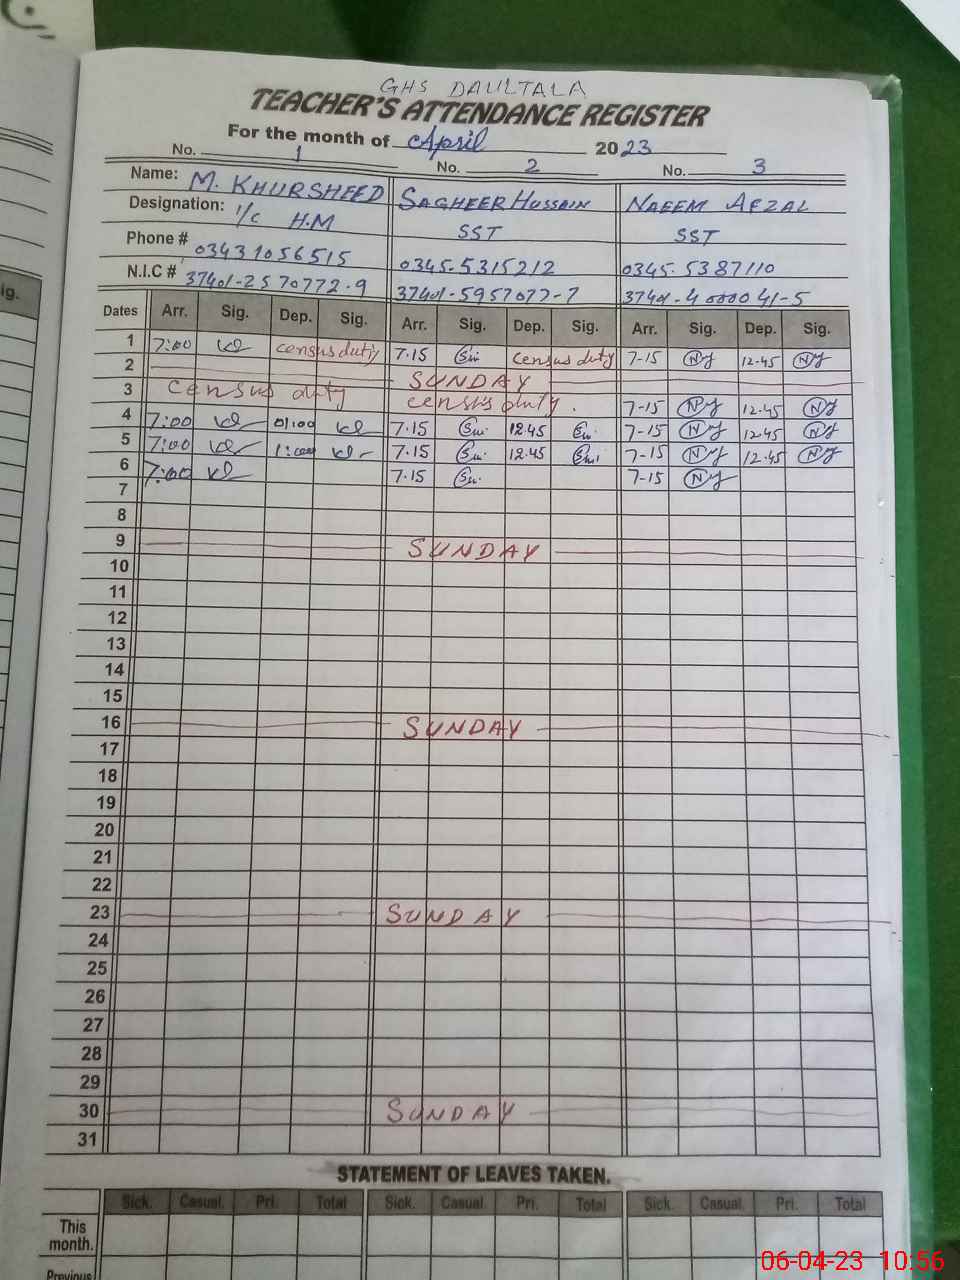 GHS DAULTALA
TEACHER'S ATTENDANCE REGISTER
For the month of April 2023
No. 1 No. 2 No. 3
Name: M. KHURSHEED SAGHEER HUSSAIN NAEEM AFZAL
Designation: I/C H.M SST SST
Phone # 03431056515 0345-5315212 0345-5387110
N.I.C # 37401-2570772-9 37401-5957077-7 37401-4000041-5
Dates Arr. Sig. Dep. Sig. Arr. Sig. Dep. Sig. Arr. Sig. Dep. Sig.
1 7:00 census duty 7.15 census duty 7-15 12.45
2 SUNDAY
3 census duty census duty. 7-15 12.45
4 7:00 01:00 7.15 12.45 7-15 12.45
5 7:00 1:00 7.15 12.45 7-15 12.45
6 7:00 7.15 7-15
7
8
9 SUNDAY
10
11
12
13
14
15
16 SUNDAY
17
18
19
20
21
22
23 SUNDAY
24
25
26
27
28
29
30 SUNDAY
31
STATEMENT OF LEAVES TAKEN.
Sick. Casual. Pri. Total Sick. Casual. Pri. Total Sick. Casual. Pri. Total
This
month.
Previous
06-04-23 10:56